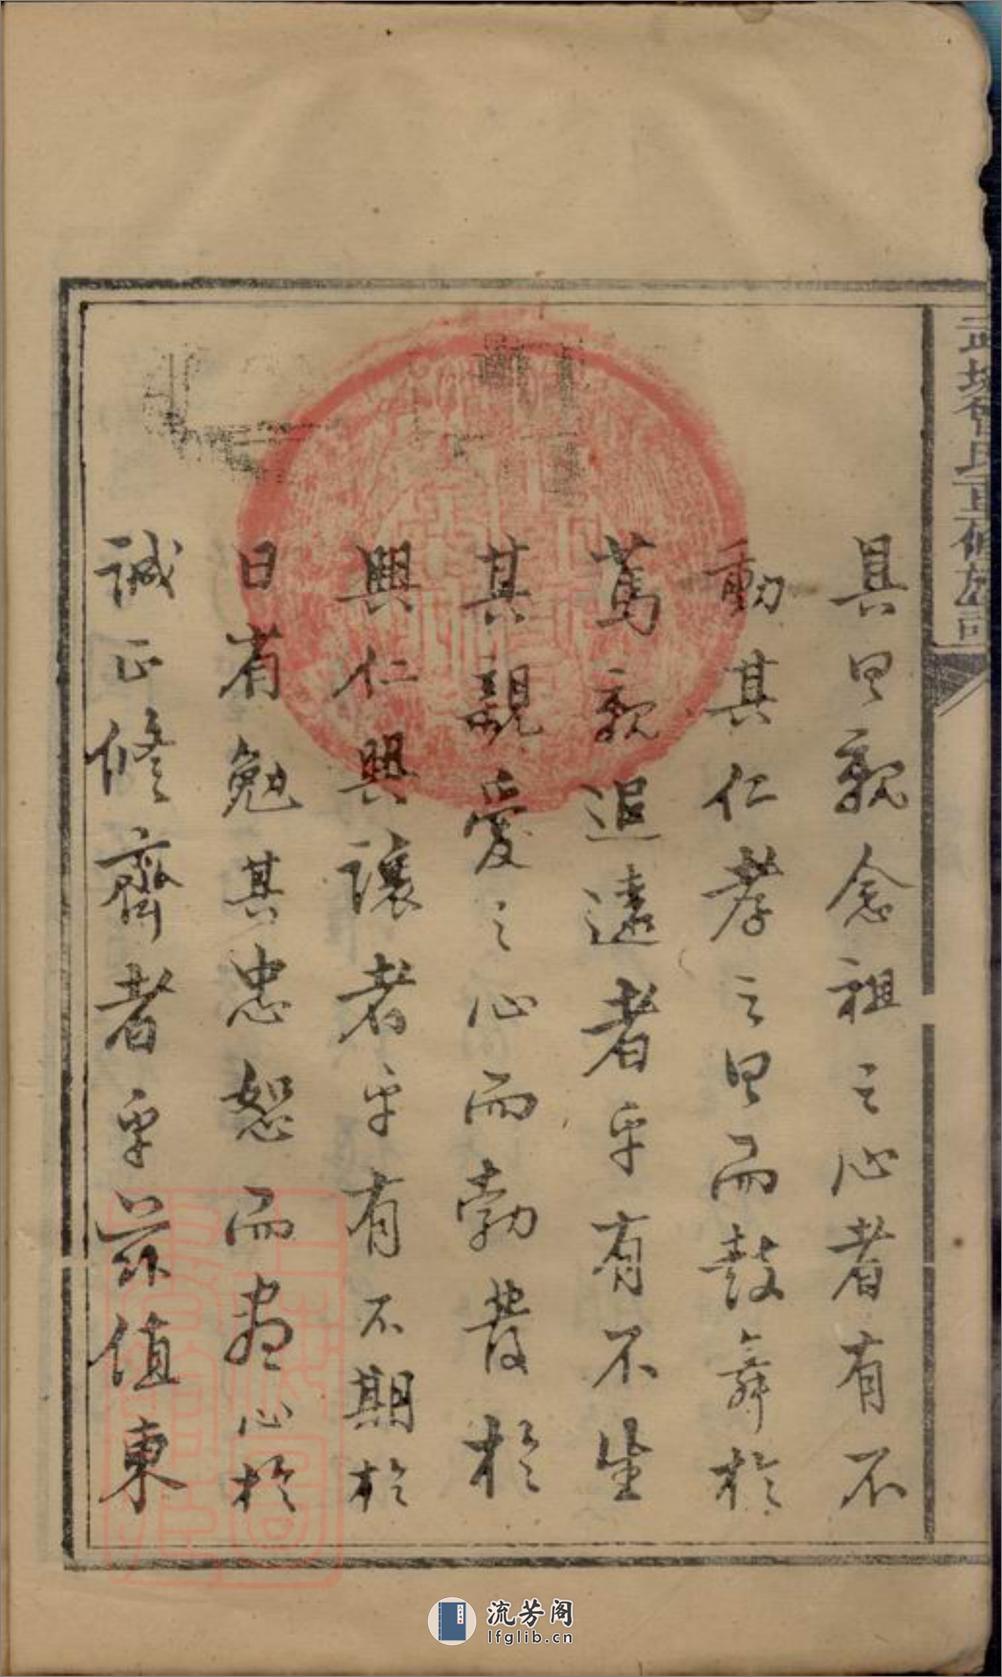 具思親念祖之心者有不
動其仁孝之思而鼓舞於
篤親追遠者乎有不生
其親愛之心而勃發於
興仁興讓者乎有不期於
日有勉其忠恕而盡心於
誠正修齊者乎茲值東
氏重修族
流芳阁
lfglib.cn